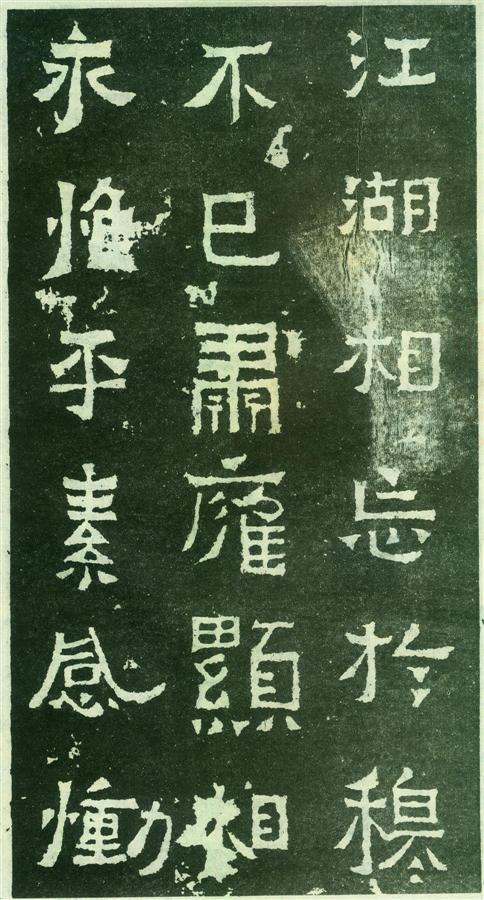 江湖相忘於穆
不已肅雍顯相
永惟平素感慟